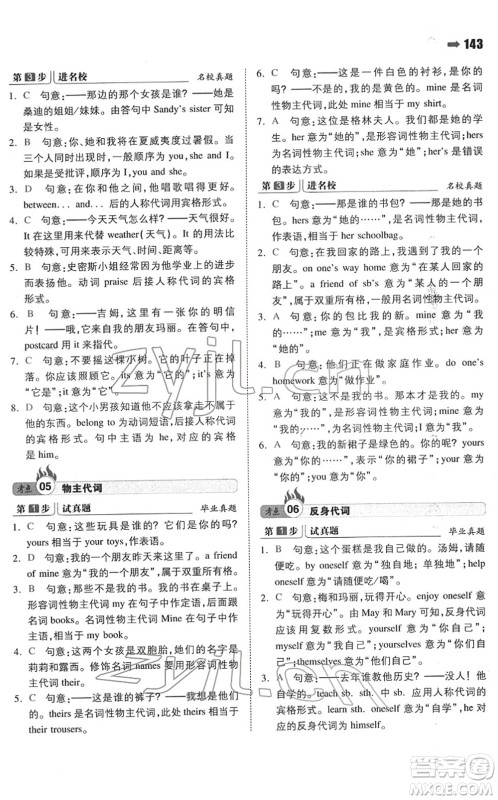 143
第3步 进名校 名校真题
1. C 句意：——那边的那个女孩是谁？——她是
桑迪的姐姐/妹妹。由答句中 Sandy's sister 可知
是女性。
2. D 句意：你、我和她将在夏威夷度过暑假。当
三个人一起，一般顺序为 you, she and I。但如果
是受批评，一般顺序为 I, she and you。
3. C 句意：在他和她之间，他唱歌唱得更好。
between... and... 后用人称代词宾格形式。
4. C 句意：——今天天气怎么样？——天气很好。
It 在答句中指代 weather(天气)。it 的用法比
较特殊，可用来表示天气、时间、距离等。
5. C 句意：史密斯小姐经常因为他学业上的进步
而表扬他。动词 praise 后接人称代词的宾格
形式。
6. B 句意：——吉姆，这里有一张你的明信
片！——噢，它来自我的朋友玛丽。在答句中，
postcard 用 it 来指代。
7. C 句意：不要摇这棵小树。它的叶子正在掉
落。你应该照顾它。its 意为“它的”；it's 意为
“它是”；it 意为“它”。
8. D 句意：这个小男孩知道他不应该拿走不属于
他的东西。belong to 为动词短语，后接人称代词
的宾格形式。句中主语为 he，对应的宾格
是 him。
考点 05 物主代词
第1步 试真题 毕业真题
1. C 句意：这些玩具是谁的？它们是你的吗？
yours 相当于 your toys，在句中作表语。
2. D 句意：我的一个朋友昨天来看我了。a friend
of mine 意为“我的一个朋友”，为固定搭配。
3. B 句意：他的书在这里，我的书在桌子上。
形容词性物主代词 my 在句子中作定语，修饰
名词 books。名词性物主代词 mine 在句子中
作主语。
4. C 句意：这两个女孩是双胞胎，她们的名字是
莉莉和露西。修饰名词 names 要用形容词性物
主代词。
5. C 句意：——这是谁的裤子？——是他们
的。theirs 是名词性物主代词，theirs 相当于
their trousers。
6. C 句意：——这是一件白色的衬衫，是你的
吗？——不，我的是黄色的。mine 是名词性物
主代词，此处 mine 相当于 my shirt。
7. A 句意：这位是格林夫人。我们喜欢她的英语
课。her 意为“她的”，是形容词性物主代词；hers
为名词性物主代词；she 意为“她”；her's 是错误
的表达方式。
第3步 进名校 名校真题
1. C 句意：——那是谁的书包？——那是她的书
包。hers 意为“她的……”，是名词性物主代词，
在句中作表语。此处 hers 相当于 her schoolbag。
2. A 句意：在我回家的路上，我遇到了我的一个
朋友。on one's way home 意为“在某人回家的
路上”。a friend of sb's 意为“某人的一个朋
友”，为固定搭配，一般用名词性物主代词。
3. A 句意：你的包比我的新。mine 意为“我
的……”；me 意为“我”，为宾格形式；my 意为“我
的”，为形容词性物主代词；her 意为“她”或
“她的”。
4. B 句意：他们正在做家庭作业。do one's
homework 意为“做作业”。
5. A 句意：这本书不是我的。我的那本书更
大。mine 意为“我的”，是名词性物主代词。
6. A 句意：我的新裙子是绿色的。你的呢？yours
意为“你的”，此处表示“你的裙子”，应用名词性
物主代词。
考点 06 反身代词
第1步 试真题 毕业真题
1. D 句意：这个蛋糕是我自己做的。汤姆，请随
便吃。by oneself 意为“某人独自地”；help
oneself 意为“请随便吃/喝”。
2. C 句意：梅和玛丽，玩得开心！enjoy oneself
意为“玩得开心”。由 May and Mary 可知反身代词
应该用复数形式。yourself 意为“你自
己”；themselves 意为“他们自己”。
3. A 句意：——去年谁教他历史？——没人！他
自学的。teach sb. sth. 中 sb. 应用人称代词
宾格形式。himself 意为“他自己”，he 对
应的反身代词为 himself。
zyjl.cn
zyjl.cn
答案圈
MXQE.COM